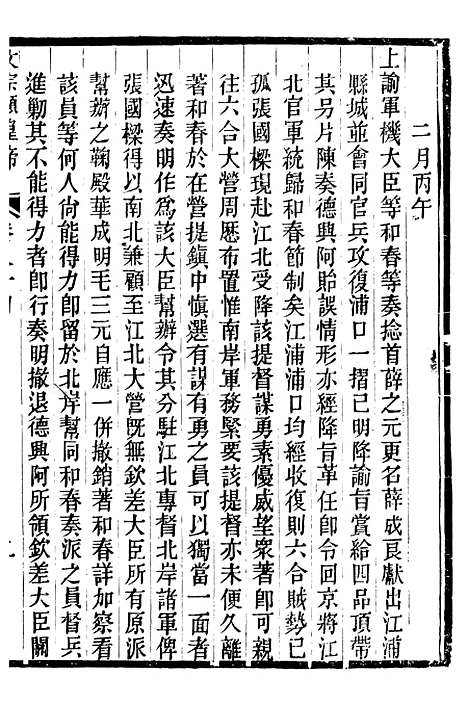 二月丙午
上諭軍機大臣等和春等奏捻首薛之元更名薛成良獻出江浦
縣城並會同官兵攻復浦口一摺已明降諭旨賞給四品頂帶
其另片陳奏德興阿貽誤情形亦經降旨革任卽令回京將江
北官軍統歸和春節制矣江浦浦口均經收復則六合賊勢已
孤張國樑現赴江北受降該提督謀勇素優威望衆著卽可親
往六合大營周歷布置惟南岸軍務緊要該提督亦未便久離
著和春於在營提鎮中慎選有謀有勇之員可以獨當一面者
迅速奏明作爲該大臣幫辦令其分駐江北專督北岸諸軍俾
張國樑得以南北兼顧至江北大營旣無欽差大臣所有原派
幫辦之鞠殿華成明毛三元自應一併撤銷著和春詳加察看
該員等何人尙能得力卽留於北岸幫同和春奏派之員督兵
進勦其不能得力者卽行奏明撤退德興阿所領欽差大臣關
文宗顯皇帝